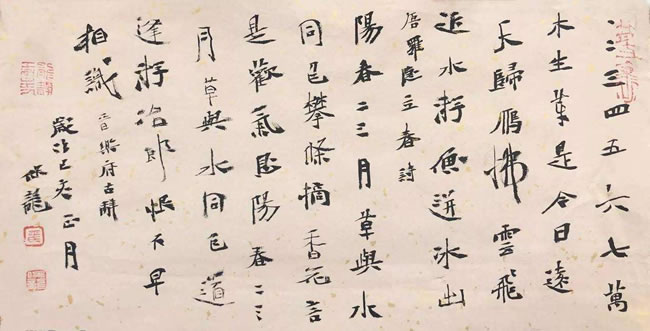 一二三四五六七萬
木生芽是今日遠
天歸鴈拂雲飛
近水游魚迸冰出
唐羅隱立春詩
陽春二三月草與水
同色攀條摘香花言
是歡氣息陽春二三
月草與水同色道
逢游冶郎恨不早
相識 晉樂府古辭
歲次己亥正月